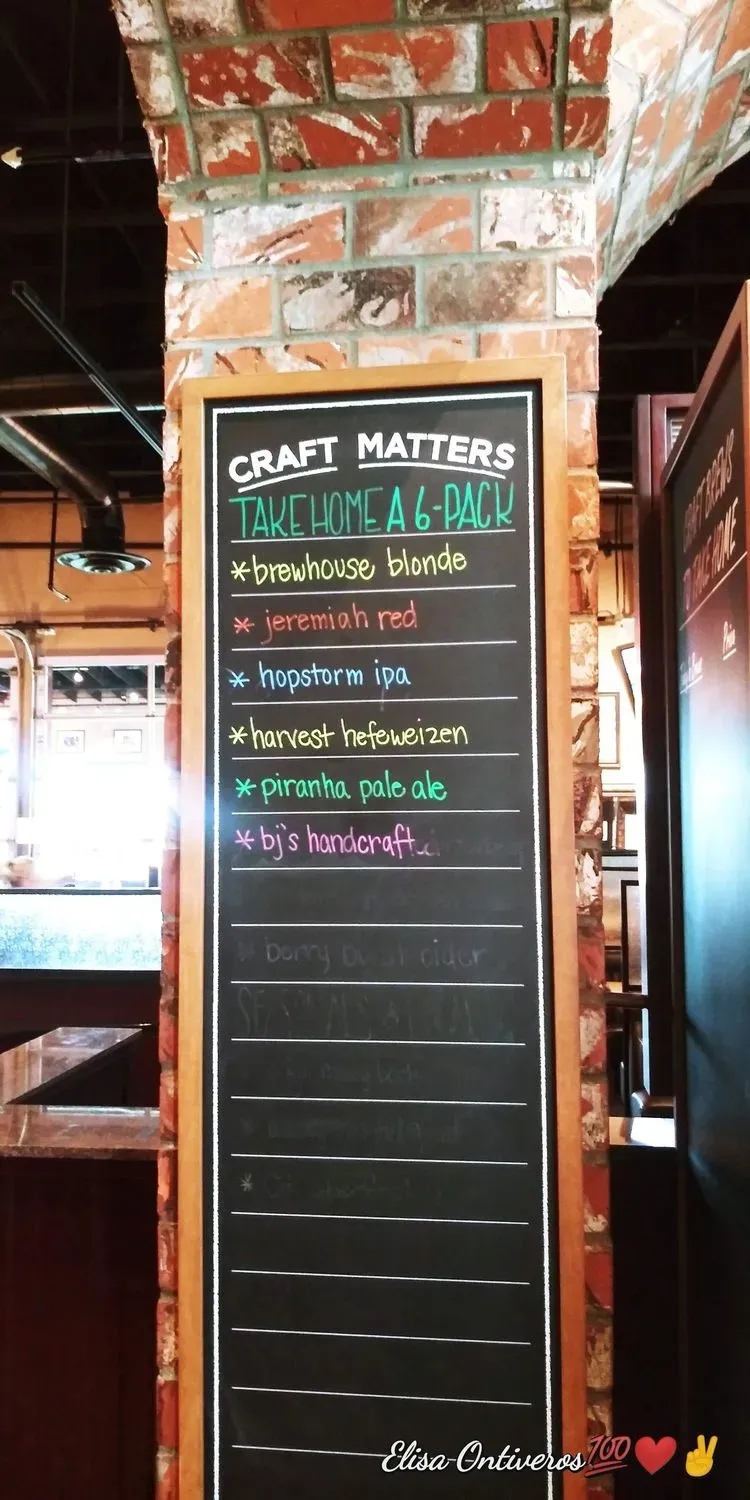 CRAFT MATTERS
TAKE HOME A 6-PACK
*brewhouse blonde
* jeremiah red
* hopstorm ipa
*harvest hefeweizen
* piranha pale ale
* bj's handcraft
* berry cider
*
CRAFT BREWS
TO TAKE HOME
Elisa Ontiveros💯❤️✌️